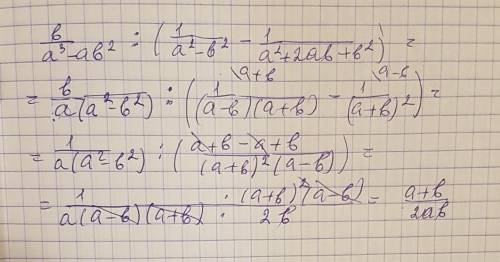 в/(a³-aв²) : (1/(a²-в²) - 1/(a²+2aв+в²)) =
= в/(a(a²-в²)) : (1\a+в/((a-в)(a+в)) - 1\a-в/(a+в)²) =
= 1/(a(a²-в²)) : ((a+в-a+в)/((a+в)²(a-в))) =
= 1/(a(a-в)(a+в)) · (a+в)²(a-в)/2в = (a+в)/2aв